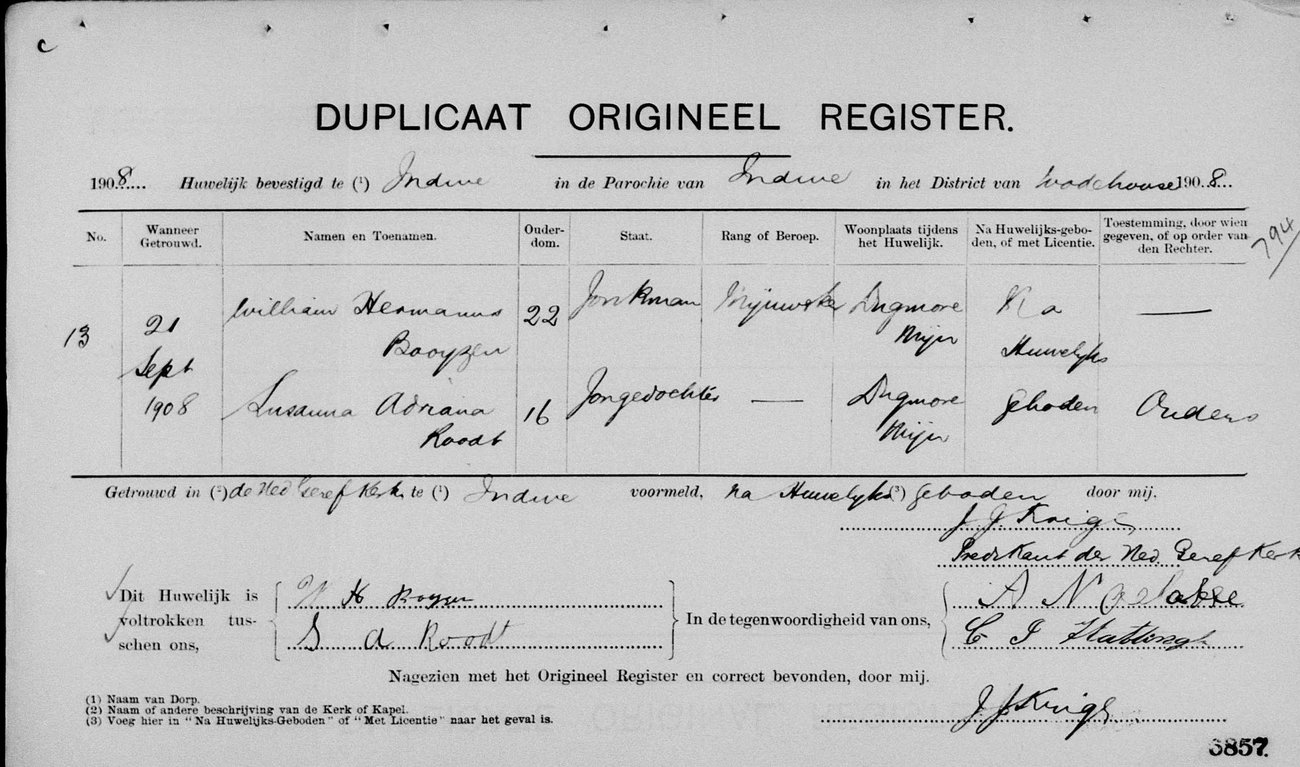 C
DUPLICAAT ORIGINEEL REGISTER.
1908 Huwelijk bevestigd te (1) Indwe in de Parochie van Indwe in het District van Wodehouse 1908
No. Wanneer Getrouwd. Namen en Toenamen. Ouder-dom. Staat. Rang of Beroep. Woonplaats tijdens het Huwelijk. Na Huwelijks-gebo-den, of met Licentie. Toestemming, door wien gegeven, of op order van den Rechter.
794
13 21 Sept 1908
William Hermanus Booyzen 22 Jonkman Mijnwerker Dugmore Mijn Na Huwelyks —
Susanna Adriana Roodt 16 Jongedochter — Dugmore Mijn geboden Ouders
Getrouwd in (2) de Ned Geref Kerk te (1) Indwe voormeld, na Huwelyks (3) geboden door mij.
J J Krige
Predikant der Ned. Geref Kerk
Dit Huwelijk is voltrokken tus-schen ons,
W H Booyzen
S A Roodt
In de tegenwoordigheid van ons,
A N
C J Hattingh
Nagezien met het Origineel Register en correct bevonden, door mij.
J J Krige
(1) Naam van Dorp.
(2) Naam of andere beschrijving van de Kerk of Kapel.
(3) Voeg hier in "Na Huwelijks-Geboden" of "Met Licentie" naar het geval is.
3857.